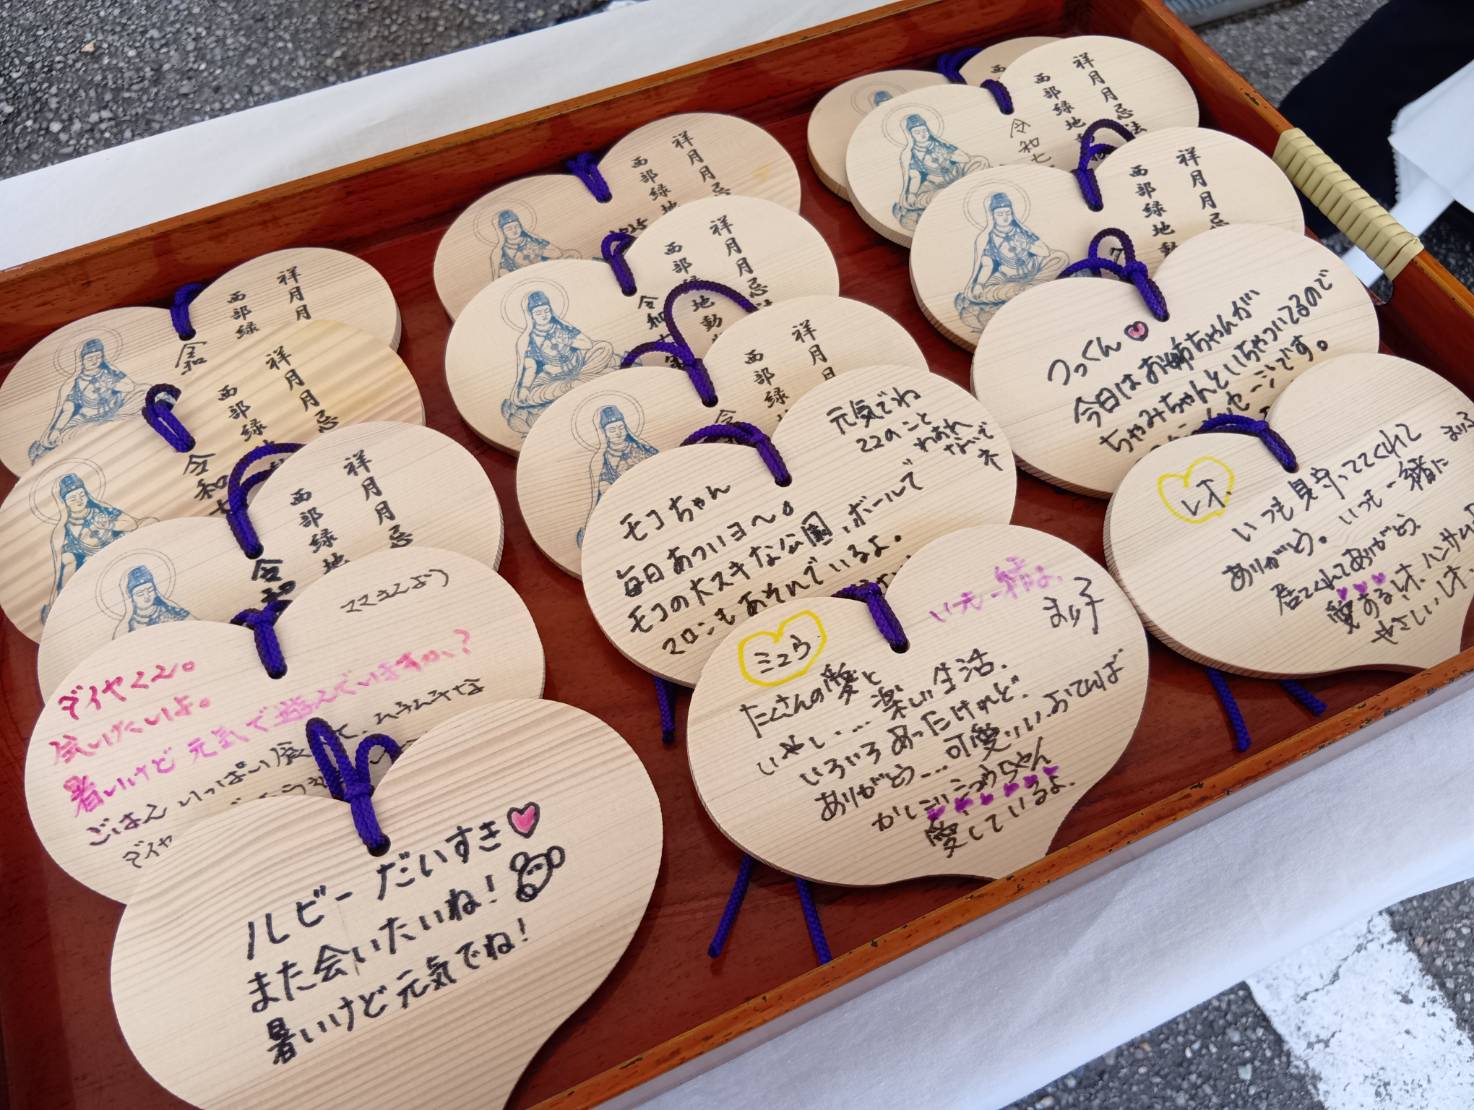 祥月月
西部緑
祥月月忌
西部緑
令和七
祥月月忌
西部緑地
令和
ママより
ダイヤくん。
会いたいよ。
暑いけど元気で遊んでいますか?
ごはん いっぱい
ダイヤ
ルビー だいすき
また会いたいね!
暑いけど元気でね!
祥月月忌
西部緑地
祥月月忌
西部緑地動
令和七
祥月月
西部緑地
元気でね
ココのこと
わすれ
ないで
ネ
モコちゃん
毎日あついヨ〜。
モコの大スキな公園、ボールで
マロンもあそんでいるよ。
ミュウ
いつも一緒よ
まり子
たくさんの愛と
いやし...楽しい生活.
いろいろあったけれど.
ありがとう...可愛いい.おてんば
かしこいミュウちゃん
愛しているよ.
祥月月忌法
西部緑地
令和七
祥月月忌
西部緑地動
つっくん
今日はお姉ちゃんが
ちゃみちゃんといちゃついてるので
メッセージです。
レオ.
まり子
いつも見守ってくれて
ありがとう。いつも一緒に
居てくれてありがとう
愛するレオ.ハンサム
やさしいレオ.